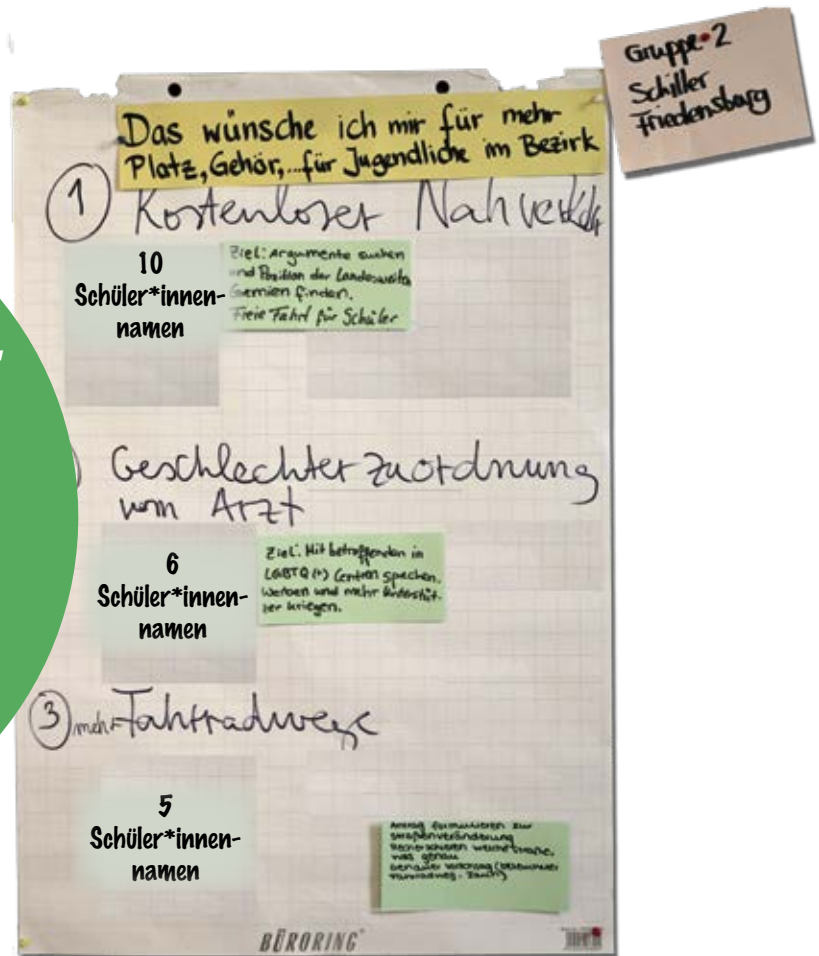 Gruppe 2
Schiller
Friedensburg
Das wünsche ich mir für mehr
Platz, Gehör,... für Jugendliche im Bezirk
1 Kostenloser Nahverkehr
10
Schüler*innen-
namen
Ziel: Argumente suchen
und Position der Landesweiten
Gremien finden.
Freie Fahrt für Schüler
Geschlechterzuordnung
vom Arzt
6
Schüler*innen-
namen
Ziel: Mit betroffenden in
LGBTQ(+) Centren spechen.
Werben und mehr Unterstüt-
zer kriegen.
3 mehr Fahrradwege
5
Schüler*innen-
namen
Antrag formulieren zur
Straßenveränderung
Recherchieren welche Straße,
was genau
Genauer Vorschlag
BÜRORING